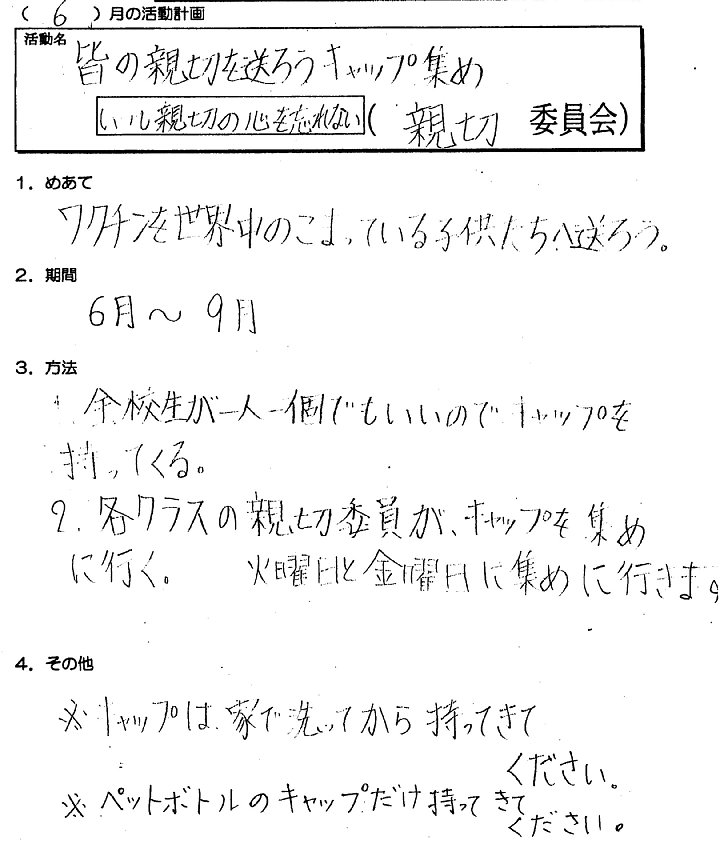 ( 6 ) 月の活動計画
活動名
皆の親切を送ろうキャップ集め
親切の心を忘れない ( 親切 委員会)
1. めあて
ワクチンを世界中のこまっている子供たちへ送ろう。
2. 期間
6月〜9月
3. 方法
1 全校生が一人一個でもいいのでキャップを
持ってくる。
2. 各クラスの親切委員が、キャップを集め
に行く。 火曜日と金曜日に集めに行きます
4. その他
※キャップは家で洗ってから持ってきて
ください。
※ペットボトルのキャップだけ持ってきて
ください。